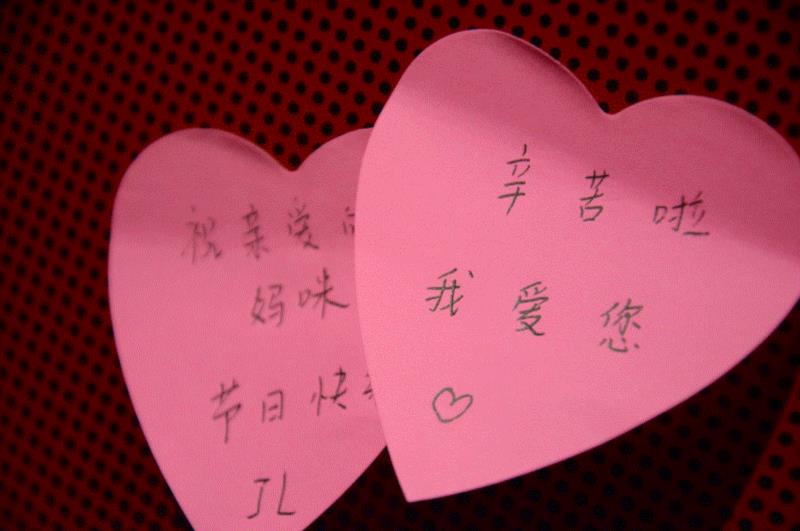 祝亲爱的
妈咪
节日快
JL
辛苦啦
我爱您
♡